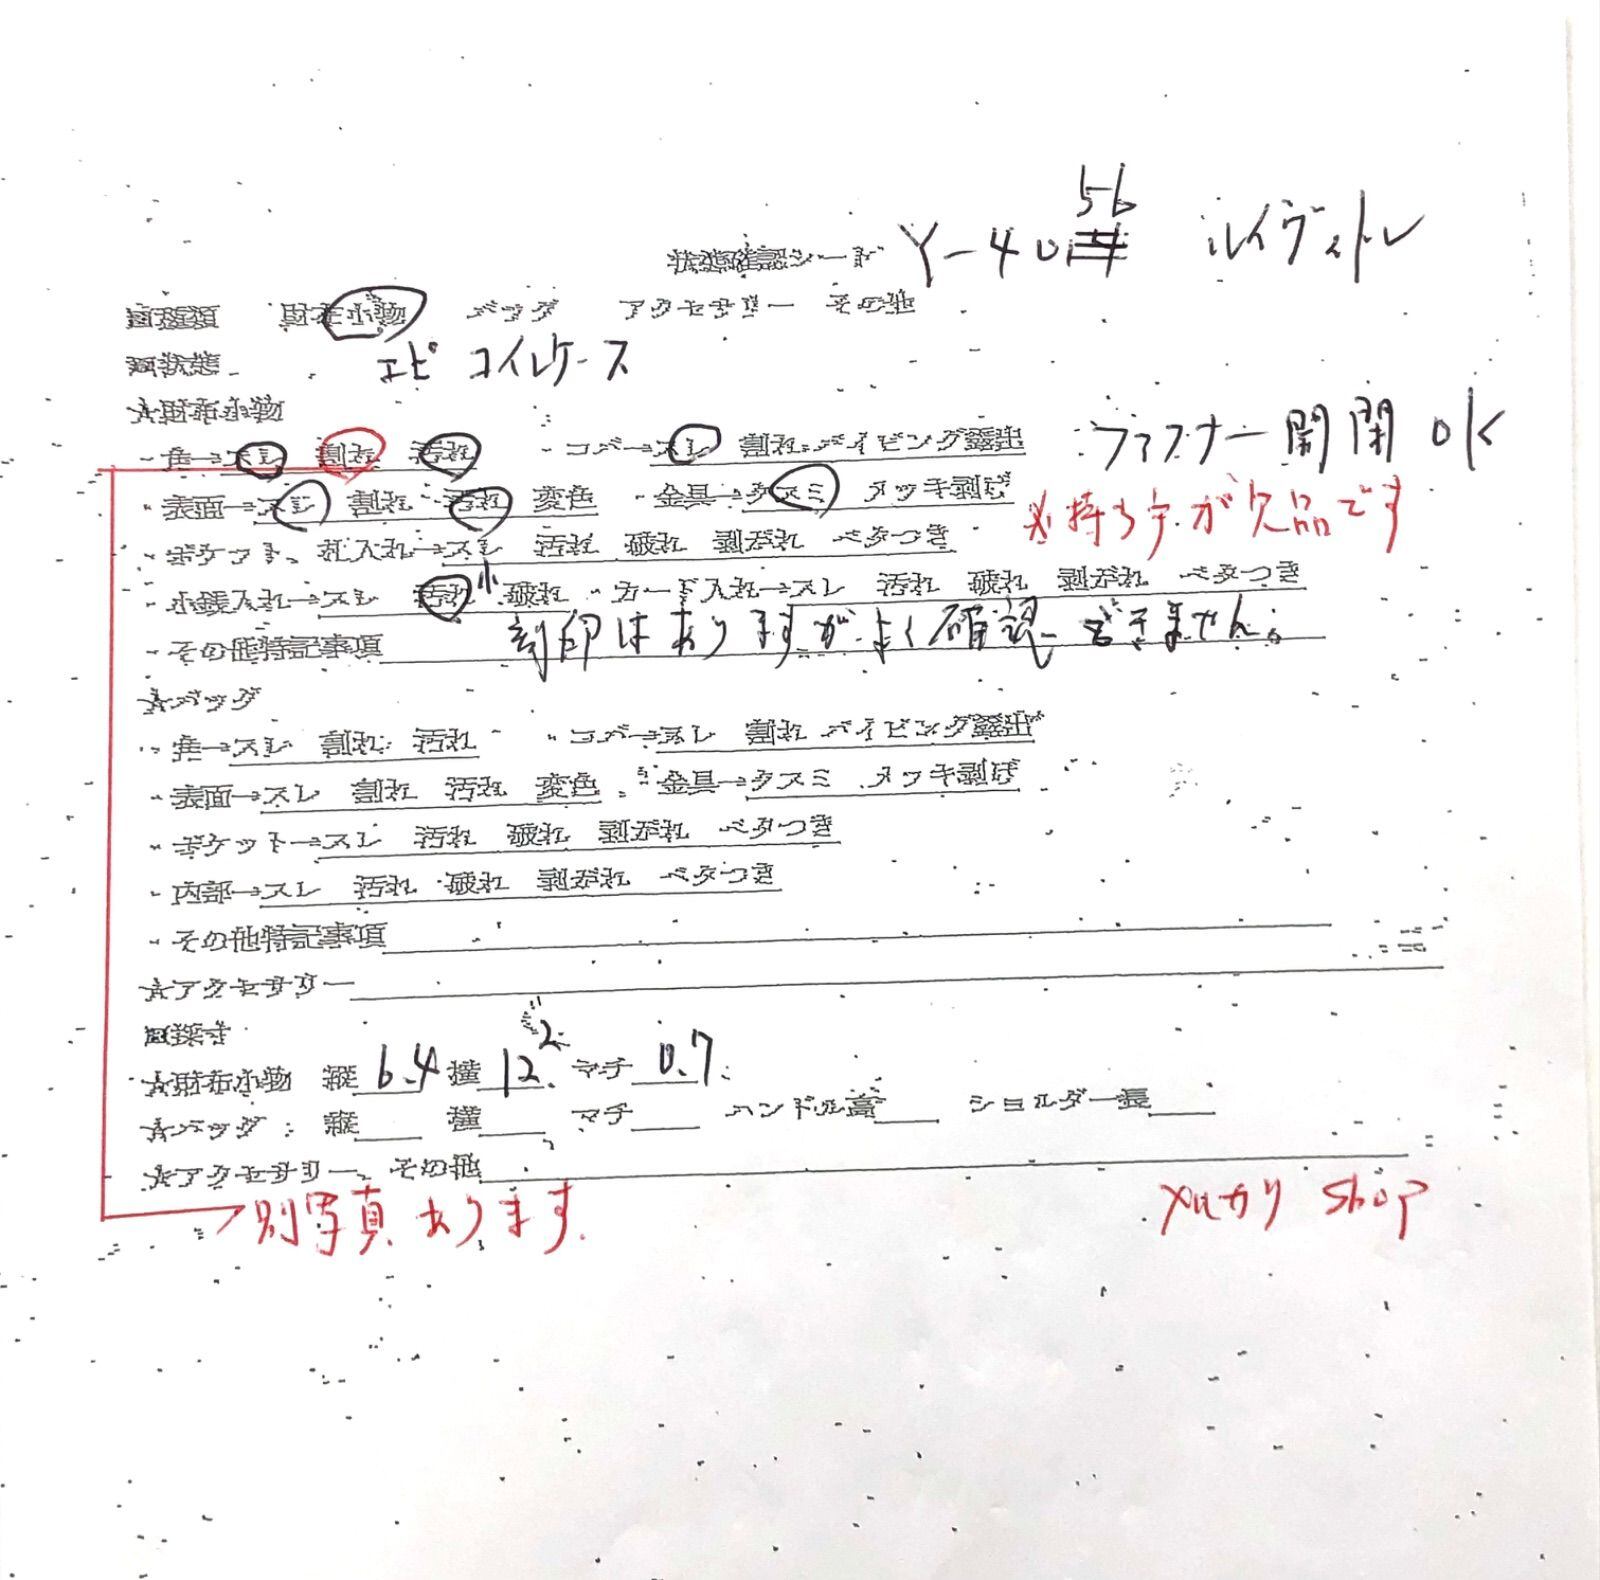 56
状態確認シート Y-40 ルイヴィトン
■種類 財布小物 バッグ アクセサリー その他
■状態 エピ コインケース
☆財布小物
・角→スレ 割れ 汚れ ・コバ→スレ 割れ パイピング露出 ファスナー開閉 OK
・表面→スレ 割れ 汚れ 変色 ・金具→クスミ メッキ剥げ ※持ち手が欠品です
・ポケット、札入れ→スレ 汚れ 破れ 剥がれ ベタつき
・小銭入れ→スレ 汚れ小 破れ ・カード入れ→スレ 汚れ 破れ 剥がれ ベタつき
・その他特記事項 刻印はありますがよく確認できません。
☆バッグ
・角→スレ 割れ 汚れ ・コバ→スレ 割れ パイピング露出
・表面→スレ 割れ 汚れ 変色 ・金具→クスミ メッキ剥げ
・ポケット→スレ 汚れ 破れ 剥がれ ベタつき
・内部→スレ 汚れ 破れ 剥がれ ベタつき
・その他特記事項
☆アクセサリー
■採寸
☆財布小物 縦 6.4 横 12.2 マチ 0.7
☆バッグ 縦 横 マチ ハンドル高 ショルダー長
☆アクセサリー、その他
別写真あります メルカリ shop